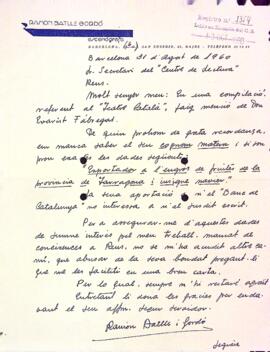 RAMON BATLLE GORDÓ
escenógrafo
Registro n.º 1319
BARCELONA, SAN EUSEBIO, 23, BAJOS
Barcelona 31 d'Agost de 1960
Sr. Secretari del "Centre de Lectura"
Reus.
Molt senyor meu: En una compilació,
referent al "Teatre Català", faig menció de Don
Evarist Fàbregas.
De quin prohom de grata recordança,
em manca saber el seu cognom matern i si son
prou exactes les dades següents:
"Exportador a l'engros de fruites de la
provincia de Tarragona i insigne navier."
La seva aportació a n'el "Banc de
Catalunya" no interessa a n'el susdit escrit.
Per a assegurar-me d'aquestes dades
de summe interés pel meu treball, mancat de
coneixences a Reus, no se m'ha acudit altre ca-
mí, que abusar de la seva bondat pregant-li
que me les faciliti en una breu carta.
Per lo qual, sempre m'hi restaré agraït
Entretant li dono les gracies per enda-
vant el seu affm. segur servidor.
Ramón Batlle i Gordó
Segueix